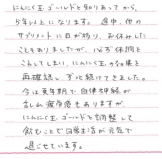 にんにく玉ゴールドと知りあってから、
5年以上になります。途中、他の
サプリメントに目が行り、お休みした
こともありましたが、必ず体調を
こわしてしまい、にんにく玉の効果を
再確認し、ずっと続けてきました。
今は更年期で自律神経が
乱れ疲労感もありますが
にんにく玉ゴールドを調整して
飲むことで日常生活が元気で
過ごせています。